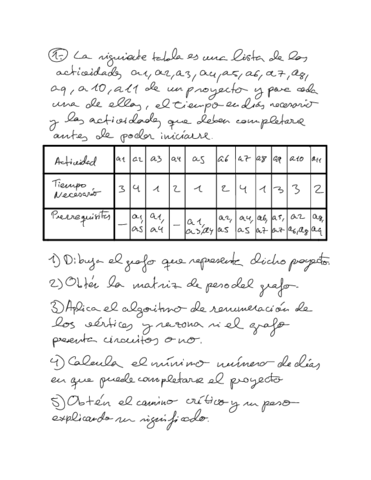 1- La siguiente tabla es una lista de las
actividades a1, a2, a3, a4, a5, a6, a7, a8,
a9, a10, a11 de un proyecto y para cada
una de ellas, el tiempo en días necesario
y las actividades que deben completarse
antes de poder iniciarse.
Actividad a1 a2 a3 a4 a5 a6 a7 a8 a9 a10 a11
Tiempo Necesario 3 4 1 2 1 2 4 1 3 3 2
Prerrequisitos - a1, a5 a1, a4 - a1, a3, a4 a5 a4, a5 a6, a7 a1, a7 a2 a6, a8 a8, a9
1) Dibuja el grafo que representa dicho proyecto.
2) Obtén la matriz de peso del grafo.
3) Aplica el algoritmo de renumeración de
los vértices y razona si el grafo
presenta circuitos o no.
4) Calcula el mínimo número de días
en que puede completarse el proyecto
5) Obtén el camino crítico y su peso
explicando su significado.